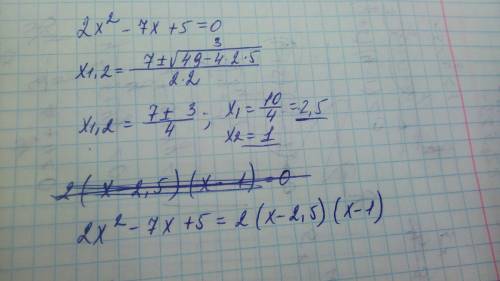 2x² - 7x + 5 = 0
x1,2 = (7 ± √(49 - 4·2·5)) / (2·2) 3
x1,2 = (7 ± 3) / 4 ; x₁ = 10/4 = 2,5
x2 = 1
2(x - 2,5)(x - 1) = 0
2x² - 7x + 5 = 2(x - 2,5)(x - 1)